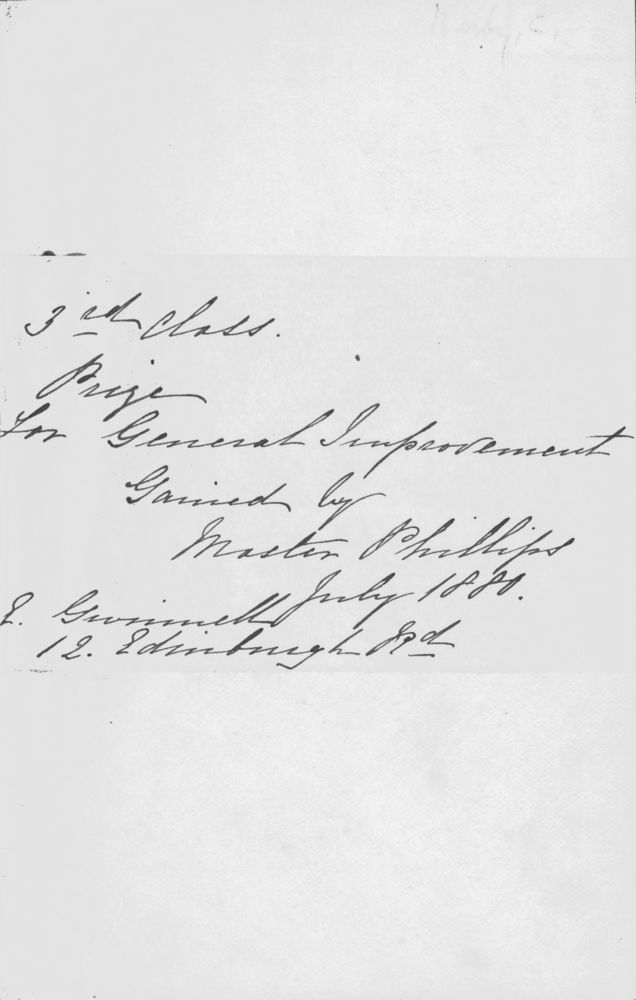 3rd Class.
Prize
For General Improvement
Gained by
Master Phillips
July 1880.
E. Gwinnell
12. Edinburgh Rd